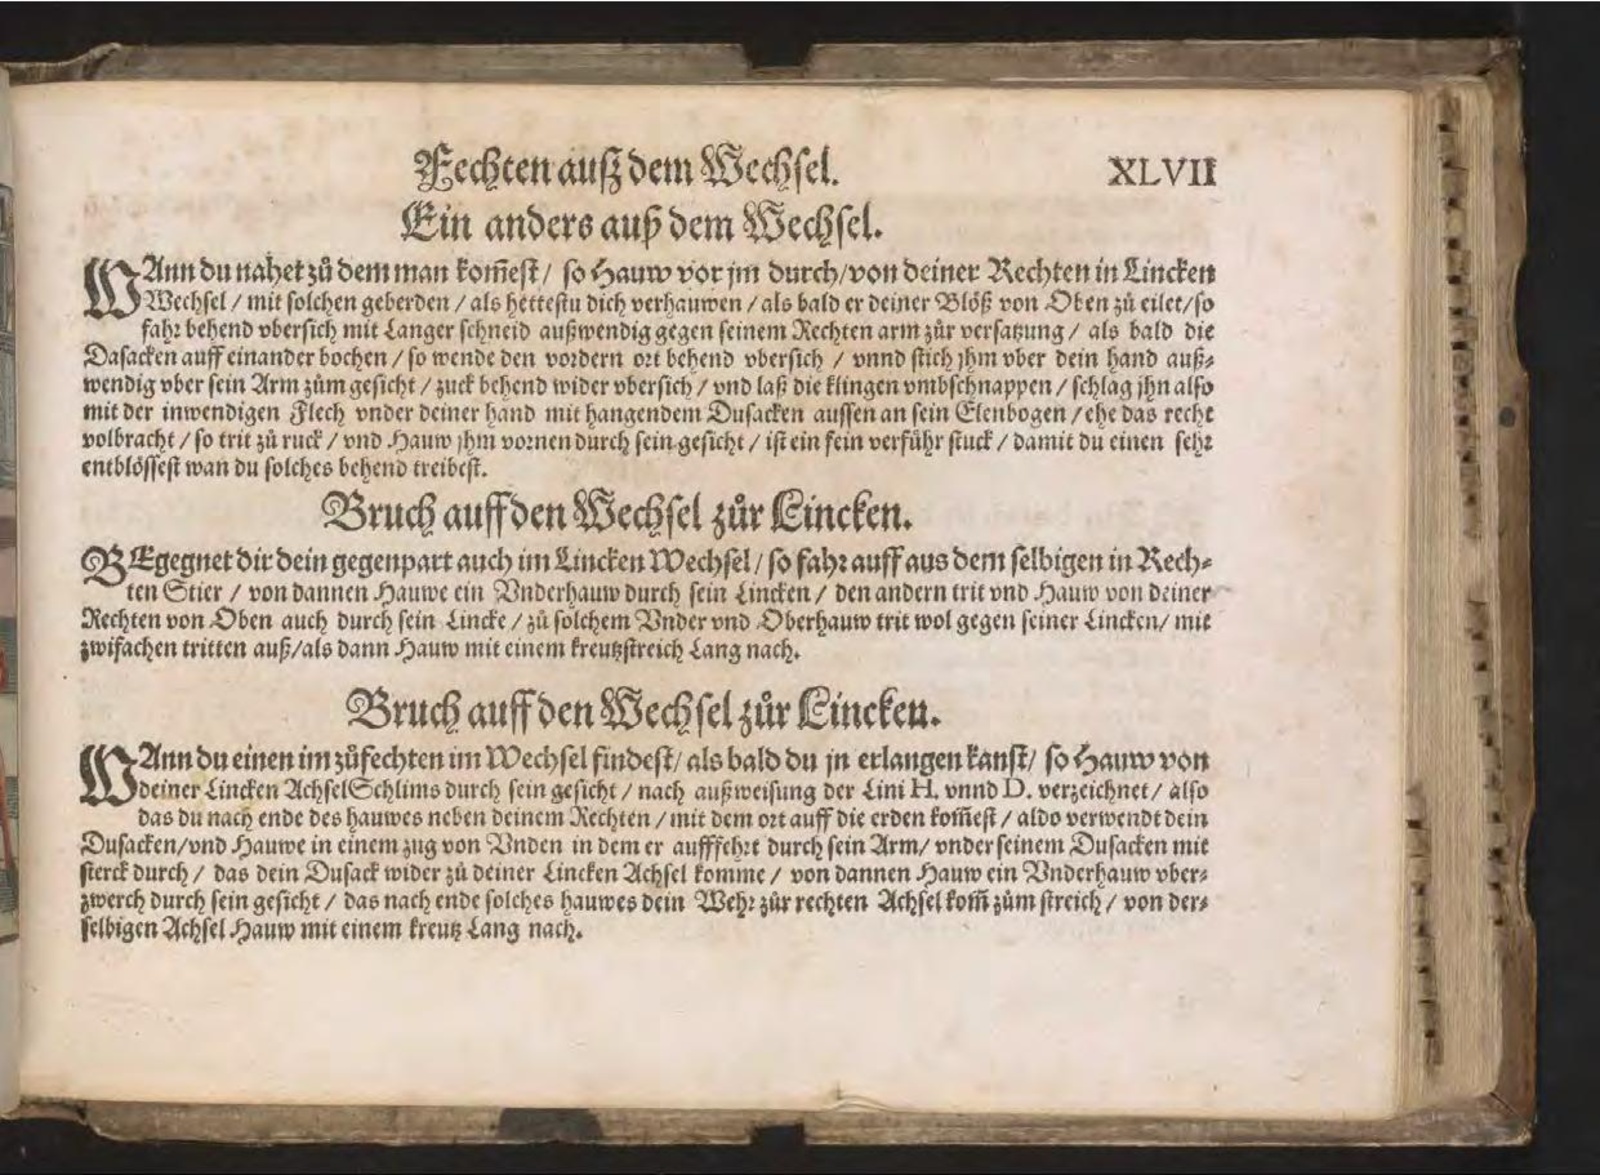 Fechten auß dem Wechsel. XLVII
Ein anders auß dem Wechsel.
WAnn du nahet zů dem man kom̃est / so Hauw vor jm durch / von deiner Rechten in Lincken
Wechsel / mit solchen geberden / als hettestu dich verhauwen / als bald er deiner Blöß von Oben zů eilet / so
fahr behend vbersich mit Langer schneid außwendig gegen seinem Rechten arm zůr versatzung / als bald die
Dasacken auff einander bochen / so wende den vordern ort behend vbersich / vnnd stich jhm vber dein hand auß⸗
wendig vber sein Arm zům gesicht / zuck behend wider vbersich / vnd laß die klingen vmbschnappen / schlag jhn also
mit der inwendigen Flech vnder deiner hand mit hangendem Dusacken aussen an sein Elenbogen / ehe das recht
volbracht / so trit zů ruck / vnd Hauw jhm vornen durch sein gesicht / ist ein fein verführ stuck / damit du einen sehr
entblössest wan du solches behend treibest.
Bruch auff den Wechsel zůr Lincken.
BEgegnet dir dein gegenpart auch im Lincken Wechsel / so fahr auff aus dem selbigen in Rech⸗
ten Stier / von dannen Hauwe ein Vnderhauw durch sein Lincken / den andern trit vnd Hauw von deiner
Rechten von Oben auch durch sein Lincke / zů solchem Vnder vnd Oberhauw trit wol gegen seiner Lincken / mit
zwifachen tritten auß / als dann Hauw mit einem kreutzstreich Lang nach.
Bruch auff den Wechsel zůr Lincken.
WAnn du einen im zůfechten im Wechsel findest / als bald du jn erlangen kanst / so Hauw von
deiner Lincken Achsel Schlims durch sein gesicht / nach außweisung der Lini H. vnnd D. verzeichnet / also
das du nach ende des hauwes neben deinem Rechten / mit dem ort auff die erden kom̃est / aldo verwendt dein
Dusacken / vnd Hauwe in einem zug von Vnden in dem er aufffehrt durch sein Arm / vnder seinem Dusacken mit
sterck durch / das dein Dusack wider zů deiner Lincken Achsel komme / von dannen Hauw ein Vnderhauw vber⸗
zwerch durch sein gesicht / das nach ende solches hauwes dein Wehr zůr rechten Achsel kom̃ zům streich / von der⸗
selbigen Achsel Hauw mit einem kreutz Lang nach.